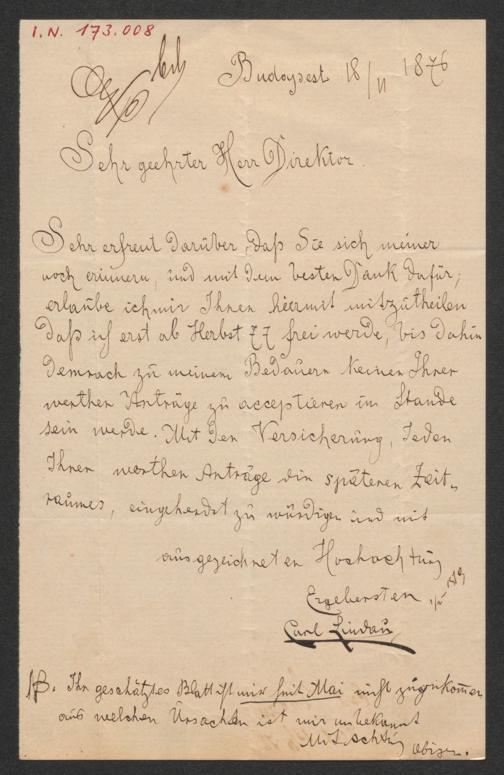 I.N. 173.008
Budapest 18/11 1876
Sehr geehrter Herr Direktor.
Sehr erfreut darüber daß Sie sich meiner
noch erinnern, und mit dem besten Dank dafür;
erlaube ich mir Ihnen hiermit mitzutheilen
daß ich erst ab Herbst 77 frei werde, bis dahin
demnach zu meinem Bedauern keinen Ihrer
werthen Anträge zu acceptieren im Stande
sein werde. Mit der Versicherung, jeden
Ihrer werthen Anträge ein späteren Zeit-
raumes, eingehendst zu würdigen und mit
ausgezeichneten Hochachtung
Ergebensten
Carl Lindau
PS. Ihr geschätztes Blatt ist mir seit Mai nicht zugekommen
aus welchen Ursachen ist mir unbekannt
Mit Achtung obiger.